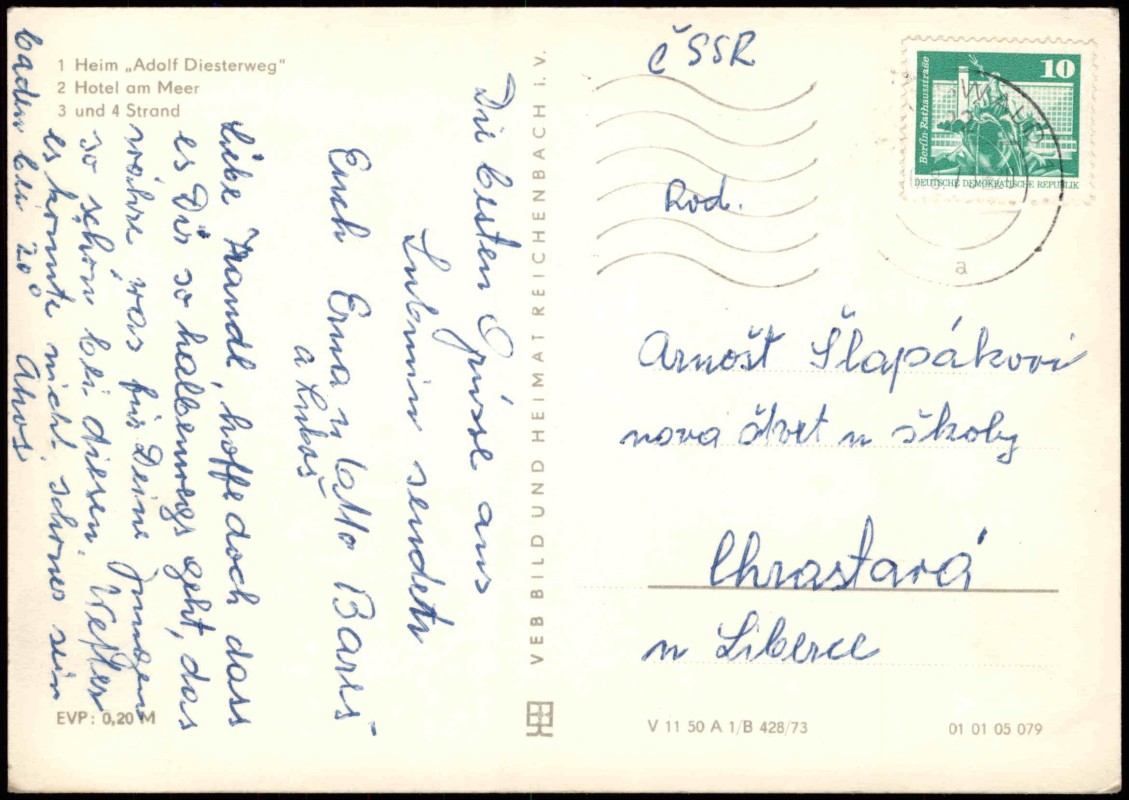 1 Heim „Adolf Diesterweg"
2 Hotel am Meer
3 und 4 Strand
Die besten Grüsse aus
Lubmin sendet
Euch Erna u Latto
a Lukaš
liebe Handl, hoffe doch dass
es Dir so halbwegs geht, das
währe was für Deine
so schön bei diesen Wetter
es konnte nicht schöner sein
baden bei 20°
Ahoi
EVP: 0,20 M
VEB BILD UND HEIMAT REICHENBACH i. V.
ČSSR
10
Berlin-Rathausstraße
DEUTSCHE DEMOKRATISCHE REPUBLIK
a
Rod.
Arnošt Šlapákovi
nova čtvet u školy
Chrastavá
u Liberce
V 11 50 A 1/B 428/73
01 01 05 079